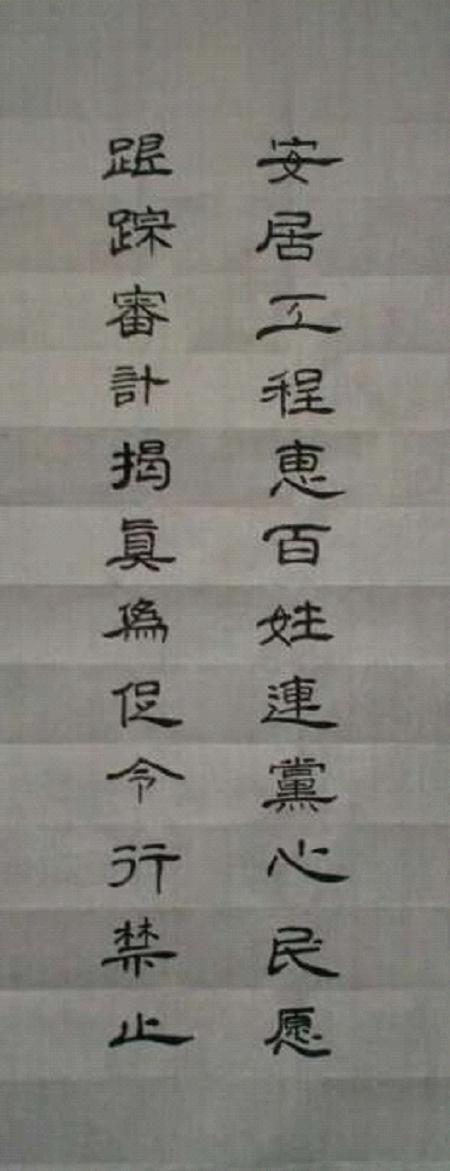 安居工程惠百姓連黨心民愿
跟踪審計揭真偽促令行禁止